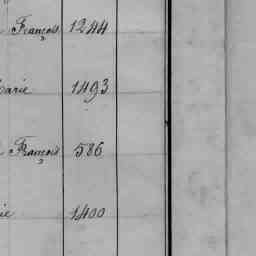 François 1244
Marie 1493
François 586
1400